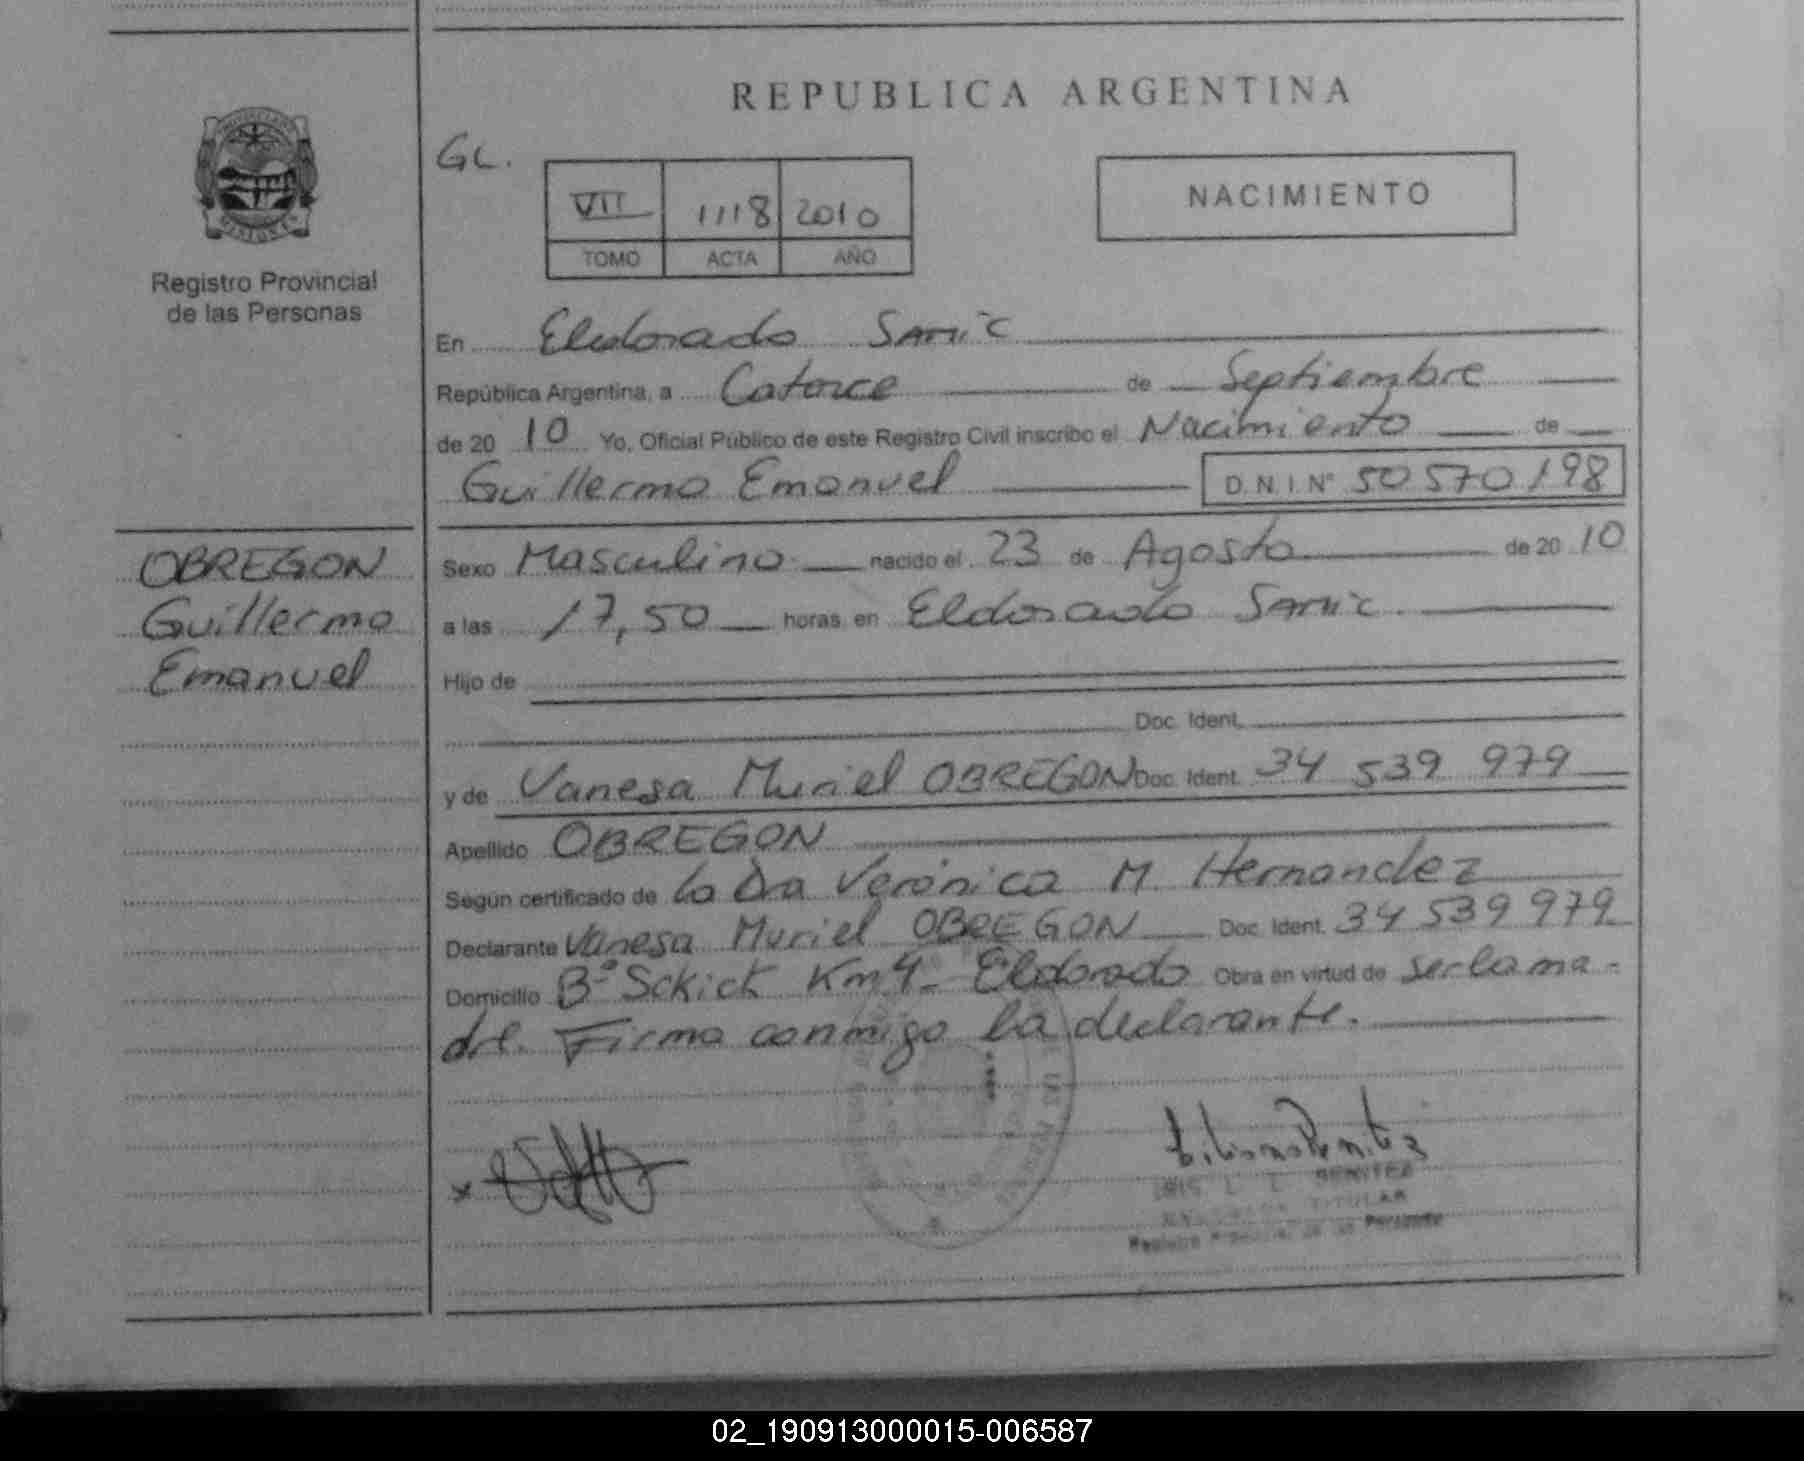 REPUBLICA ARGENTINA
GL.
NACIMIENTO
VII 1118 2010
TOMO ACTA AÑO
Registro Provincial
de las Personas
En Eldorado Samic
República Argentina, a Catorce de Septiembre
de 20 10 Yo, Oficial Público de este Registro Civil inscribo el Nacimiento de
Guillermo Emanuel D.N.I.Nº 50 570 198
OBREGON
Guillermo
Emanuel
Sexo Masculino nacido el 23 de Agosto de 20 10
a las 17,50 horas en Eldorado Samic
Hijo de
Doc. Ident.
y de Vanesa Muriel OBREGON Doc. Ident. 34 539 979
Apellido OBREGON
Según certificado de la Dra Verónica M. Hernandez
Declarante Vanesa Muriel OBREGON Doc. Ident. 34 539 979
Domicilio Bº Sckick Km 4 - Eldorado Obra en virtud de ser la ma-
dre. Firma conmigo la declarante.
BENITEZ
TITULAR
Registro Provincial de las Personas
02_190913000015-006587